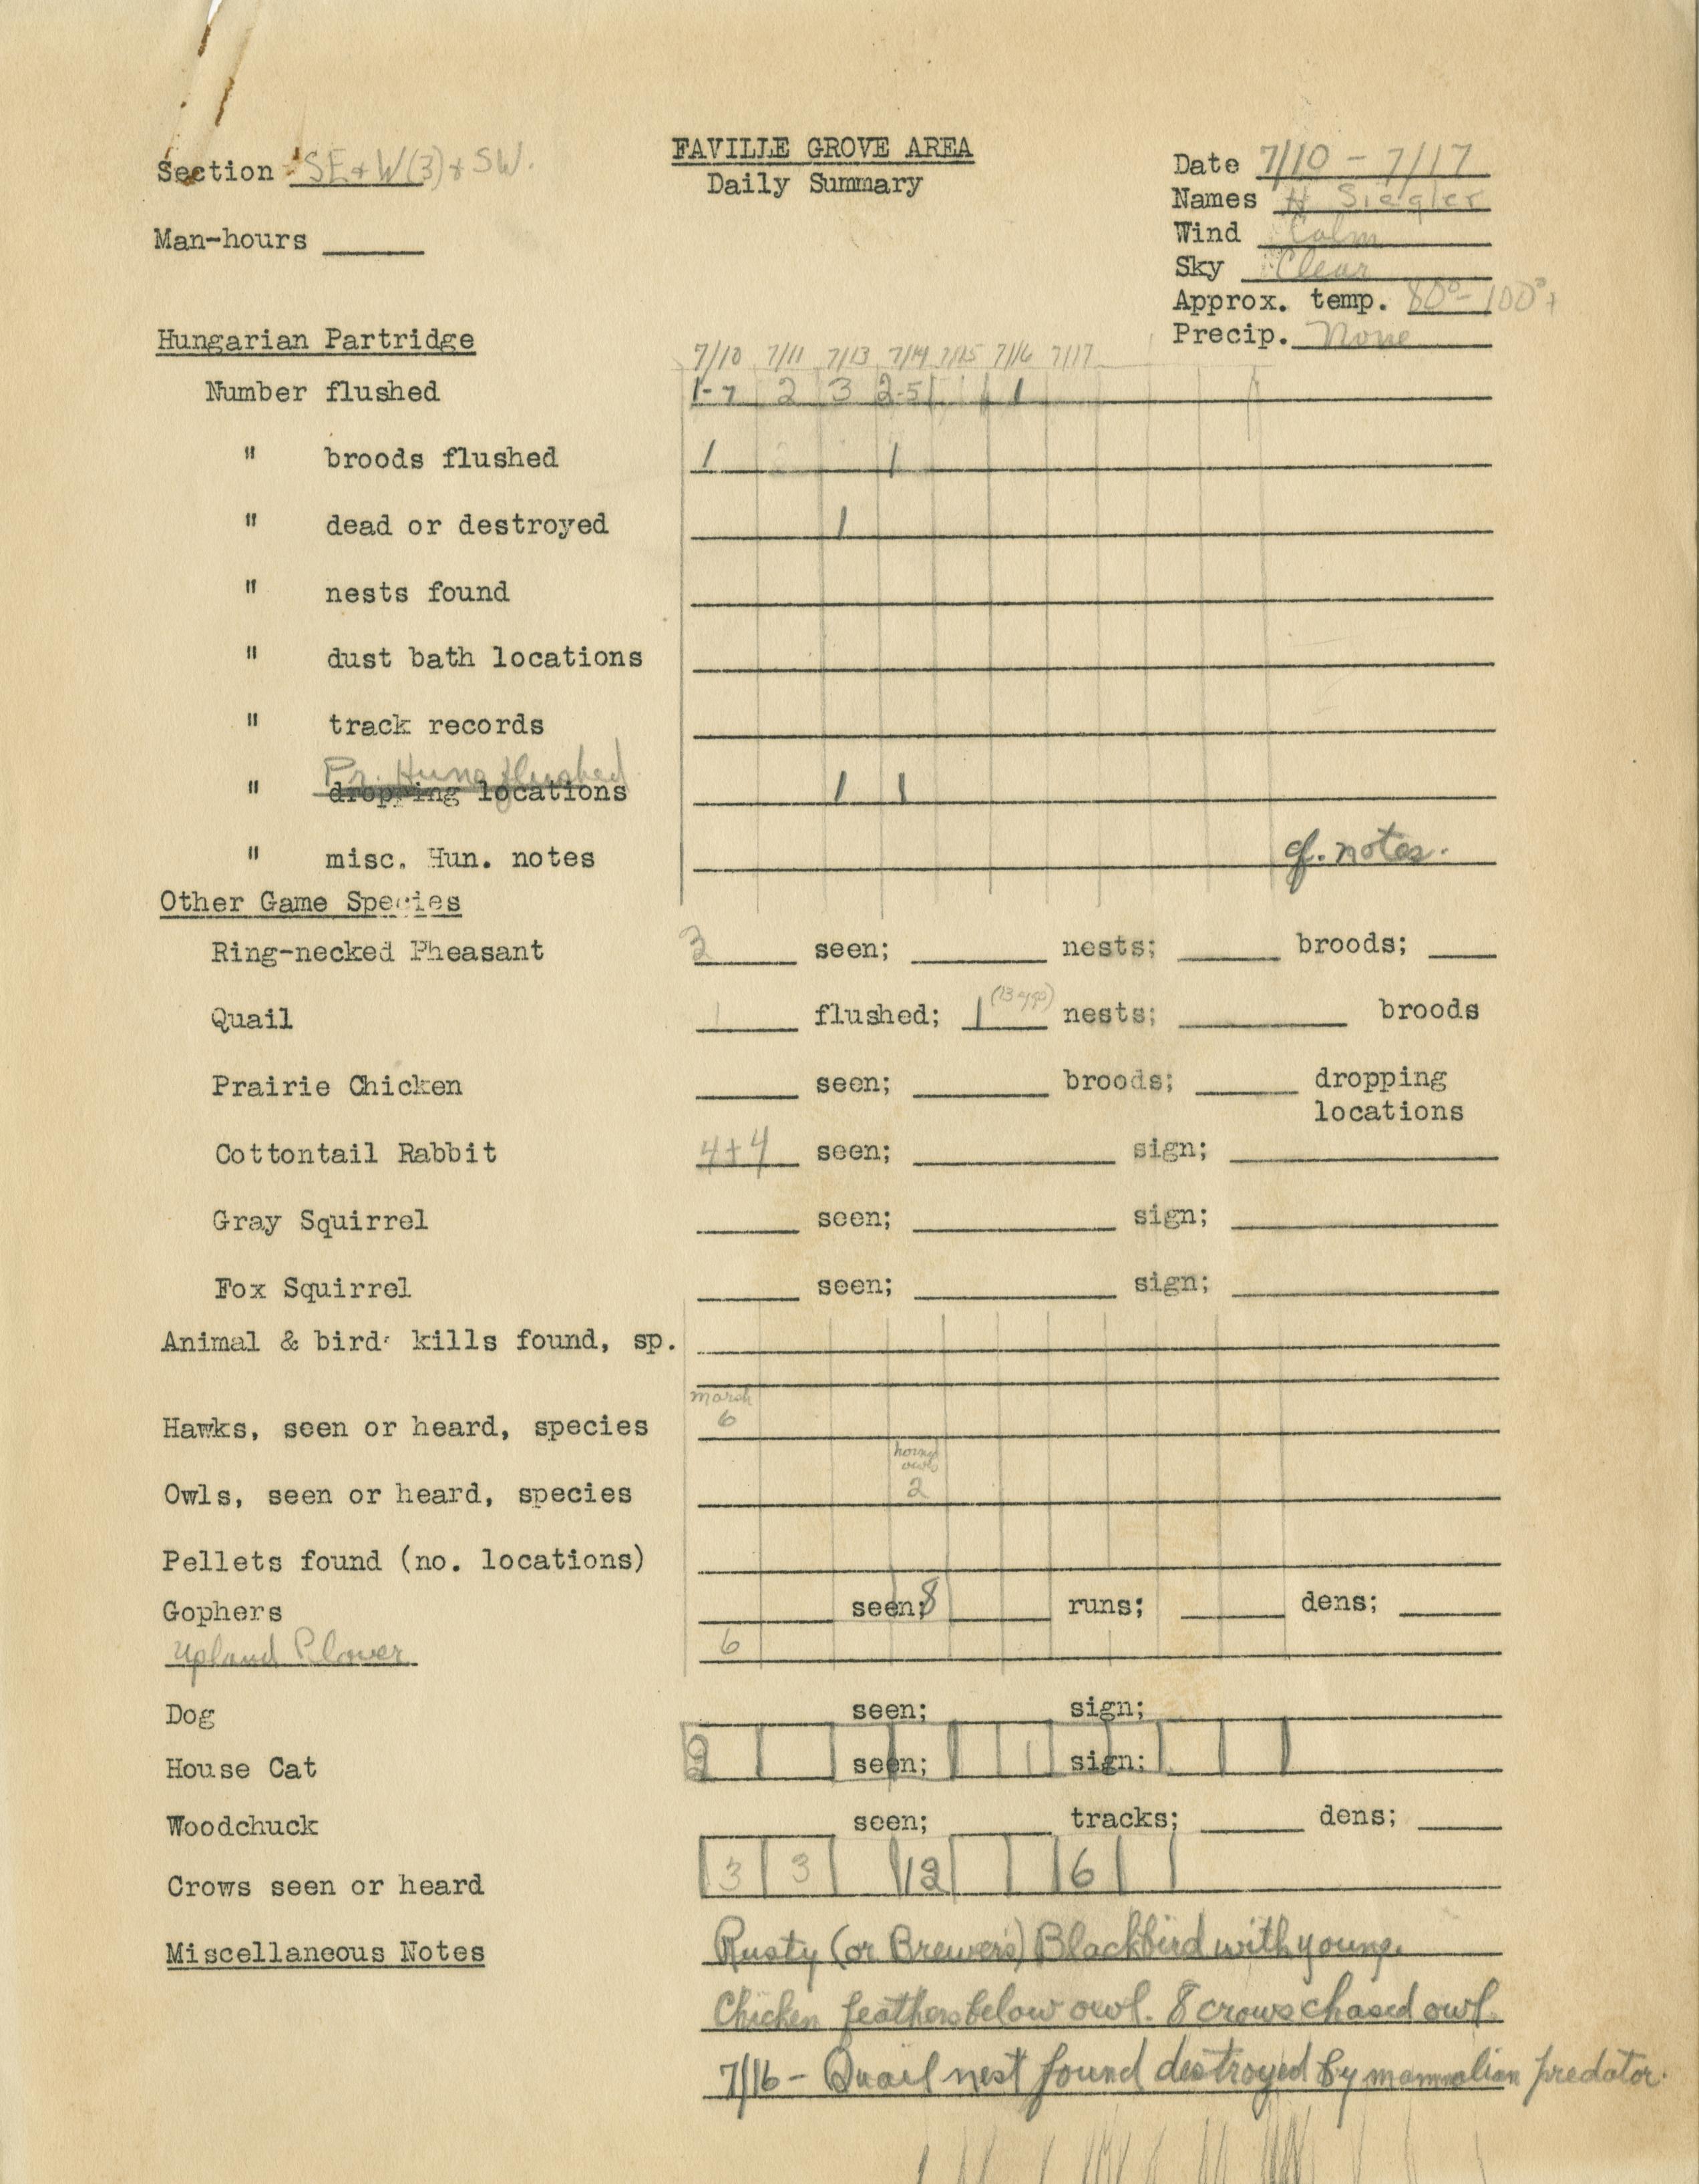 FAVILLE GROVE AREA
Daily Summary
Section SE + W(3) + SW.
Man-hours
Date 7/10 - 7/17
Names H Siegler
Wind Calm
Sky Clear
Approx. temp. 80°- 100°+
Precip. None
Hungarian Partridge
7/10 7/11 7/13 7/14 7/15 7/16 7/17
Number flushed 1-7 2 3 2-5 1
" broods flushed 1 1
" dead or destroyed 1
" nests found
" dust bath locations
" track records
Pr. Huns flushed
" dropping locations 1 1
" misc. Hun. notes cf. notes.
Other Game Species
Ring-necked Pheasant 3 seen; nests; broods;
Quail 1 flushed; 1 (13 eggs) nests; broods
Prairie Chicken seen; broods; dropping
locations
Cottontail Rabbit 4+4 seen; sign;
Gray Squirrel seen; sign;
Fox Squirrel seen; sign;
Animal & bird kills found, sp.
marsh
Hawks, seen or heard, species 6
horned
owls
Owls, seen or heard, species 2
Pellets found (no. locations)
Gophers seen; 8 runs; dens;
Upland Plover 6
Dog seen; sign;
House Cat 2 seen; 1 sign;
Woodchuck seen; tracks; dens;
Crows seen or heard 3 3 12 6
Miscellaneous Notes Rusty (or Brewers) Blackbird with young.
Chicken feathers below owl. 8 crows chased owl.
7/16 - Quail nest found destroyed by mammalian predator.